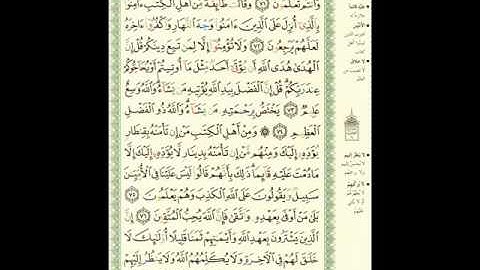 وَأَنتُمْ تَعْلَمُونَ ﴿٧١﴾ وَقَالَت طَّآئِفَةٌ مِّنْ أَهْلِ الْكِتَٰبِ ءَامِنُوا۟
بِالَّذِىٓ أُنزِلَ عَلَى الَّذِينَ ءَامَنُوا۟ وَجْهَ النَّهَارِ وَاكْفُرُوٓا۟ ءَاخِرَهُۥ
لَعَلَّهُمْ يَرْجِعُونَ ﴿٧٢﴾ وَلَا تُؤْمِنُوٓا۟ إِلَّا لِمَن تَبِعَ دِينَكُمْ قُلْ إِنَّ
الْهُدَىٰ هُدَى اللَّهِ أَن يُؤْتَىٰٓ أَحَدٌ مِّثْلَ مَآ أُوتِيتُمْ أَوْ يُحَآجُّوكُمْ
عِندَ رَبِّكُمْ قُلْ إِنَّ الْفَضْلَ بِيَدِ اللَّهِ يُؤْتِيهِ مَن يَشَآءُ وَاللَّهُ وَٰسِعٌ
عَلِيمٌ ﴿٧٣﴾ يَخْتَصُّ بِرَحْمَتِهِۦ مَن يَشَآءُ وَاللَّهُ ذُو الْفَضْلِ
الْعَظِيمِ ﴿٧٤﴾ وَمِنْ أَهْلِ الْكِتَٰبِ مَنْ إِن تَأْمَنْهُ بِقِنطَارٍ
يُؤَدِّهِۦٓ إِلَيْكَ وَمِنْهُم مَّنْ إِن تَأْمَنْهُ بِدِينَارٍ لَّا يُؤَدِّهِۦٓ إِلَيْكَ إِلَّا
مَا دُمْتَ عَلَيْهِ قَآئِمًا ذَٰلِكَ بِأَنَّهُمْ قَالُوا۟ لَيْسَ عَلَيْنَا فِى الْأُمِّيِّۦنَ
سَبِيلٌ وَيَقُولُونَ عَلَى اللَّهِ الْكَذِبَ وَهُمْ يَعْلَمُونَ ﴿٧٥﴾
بَلَىٰ مَنْ أَوْفَىٰ بِعَهْدِهِۦ وَاتَّقَىٰ فَإِنَّ اللَّهَ يُحِبُّ الْمُتَّقِينَ ﴿٧٦﴾ إِنَّ
الَّذِينَ يَشْتَرُونَ بِعَهْدِ اللَّهِ وَأَيْمَٰنِهِمْ ثَمَنًا قَلِيلًا أُو۟لَٰٓئِكَ لَا
خَلَٰقَ لَهُمْ فِى الْءَاخِرَةِ وَلَا يُكَلِّمُهُمُ اللَّهُ وَلَا يَنظُرُ إِلَيْهِمْ